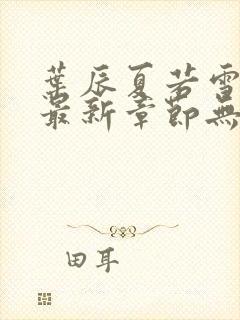 葉辰夏若雪
最新章節無
田耳